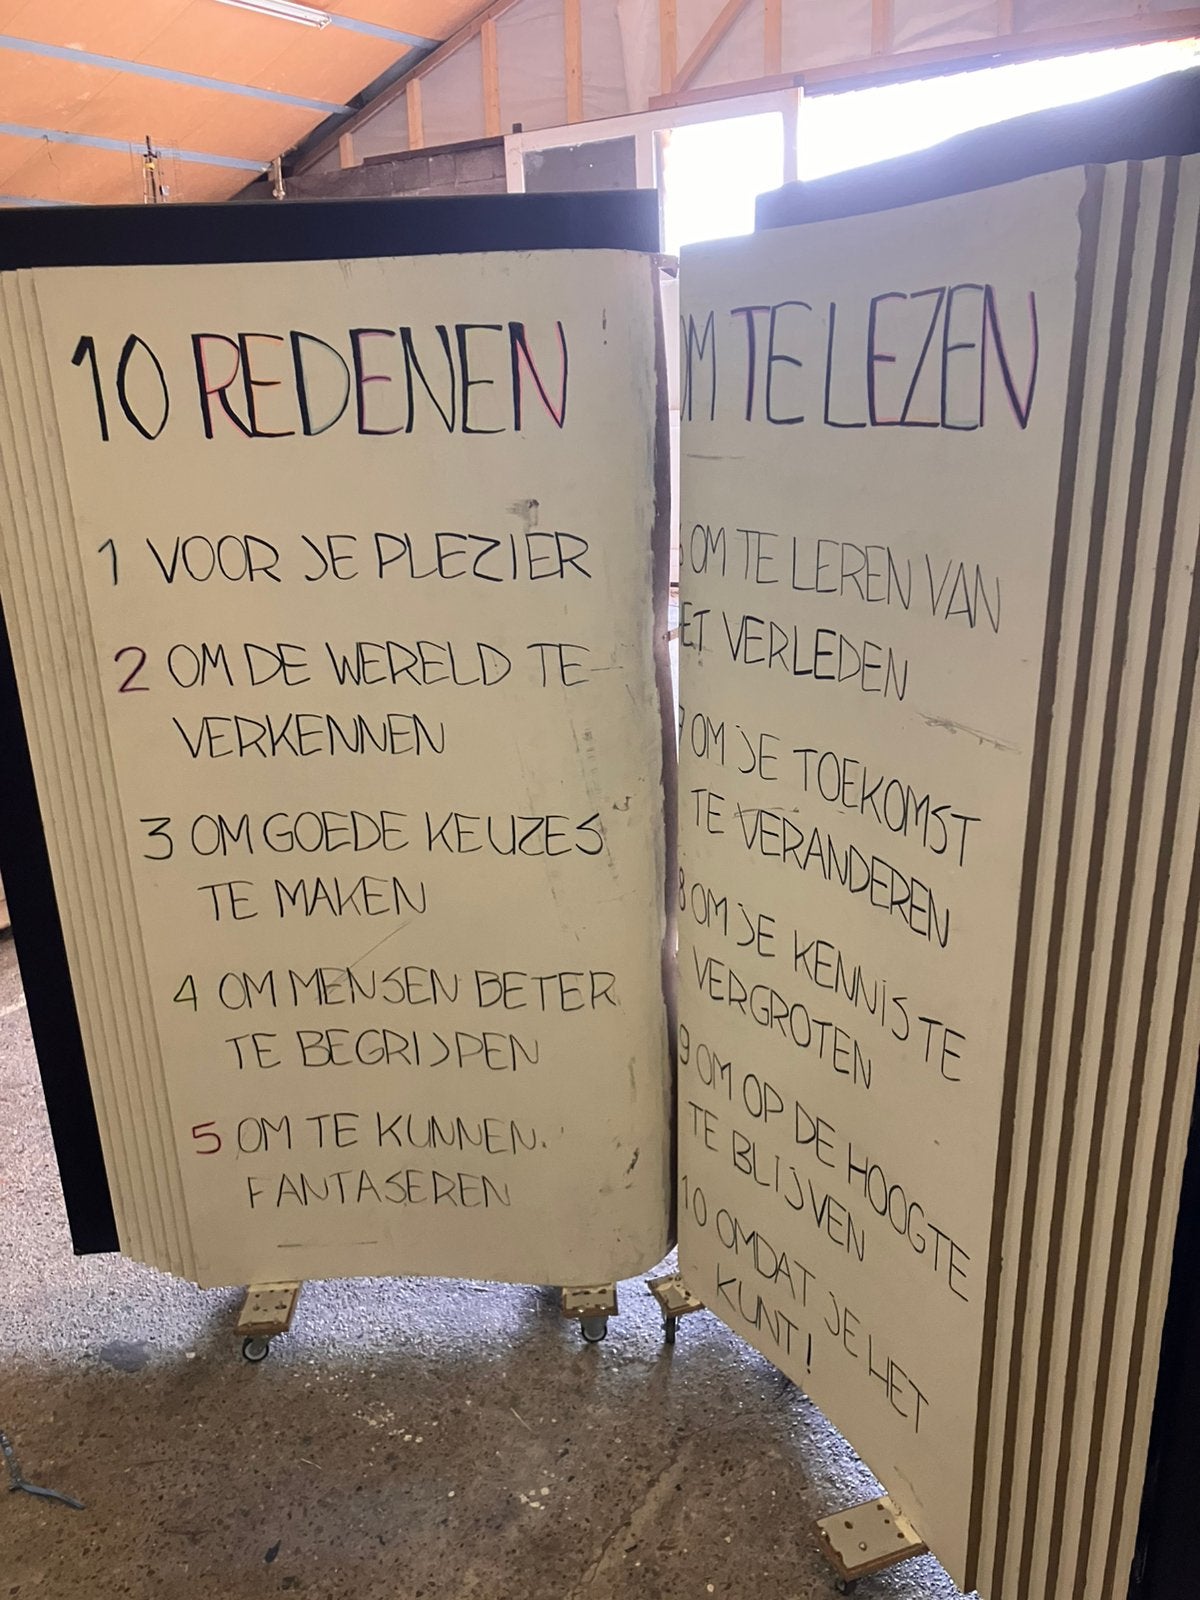 10 REDENEN
1 VOOR JE PLEZIER
2 OM DE WERELD TE
VERKENNEN
3 OM GOEDE KEUZES
TE MAKEN
4 OM MENSEN BETER
TE BEGRIJPEN
5 OM TE KUNNEN
FANTASEREN
OM TE LEZEN
OM TE LEREN VAN
ET VERLEDEN
7 OM JE TOEKOMST
TE VERANDEREN
8 OM JE KENNIS TE
VERGROTEN
9 OM OP DE HOOGTE
TE BLIJVEN
10 OMDAT JE HET
KUNT!